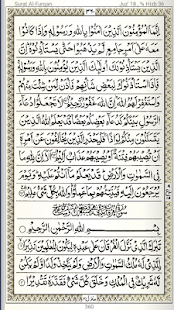 Surat Al-Furqan Juz' 18, ¾ Hizb 36
إِنَّمَا الْمُؤْمِنُونَ الَّذِينَ اٰمَنُوْا بِاللّٰهِ وَرَسُولِهٖ وَاِذَا كَانُوْا مَعَهٗ
عَلٰٓى اَمْرٍ جَامِعٍ لَّمْ يَذْهَبُوْا حَتّٰى يَسْتَاْذِنُوْهُ ؕ اِنَّ الَّذِيْنَ
يَسْتَاْذِنُوْنَكَ اُولٰٓئِكَ الَّذِيْنَ يُؤْمِنُوْنَ بِاللّٰهِ وَرَسُوْلِهٖ ۚ
فَاِذَا اسْتَاْذَنُوْكَ لِبَعْضِ شَاْنِهِمْ فَاْذَنْ لِّمَنْ شِئْتَ مِنْهُمْ
وَاسْتَغْفِرْ لَهُمُ اللّٰهَ ؕ اِنَّ اللّٰهَ غَفُوْرٌ رَّحِيْمٌ لَا تَجْعَلُوْا
دُعَآءَ الرَّسُوْلِ بَيْنَكُمْ كَدُعَآءِ بَعْضِكُمْ بَعْضًا ؕ قَدْ يَعْلَمُ اللّٰهُ الَّذِيْنَ
يَتَسَلَّلُوْنَ مِنْكُمْ لِوَاذًا ۚ فَلْيَحْذَرِ الَّذِيْنَ يُخَالِفُوْنَ عَنْ اَمْرِهٖٓ
اَنْ تُصِيْبَهُمْ فِتْنَةٌ اَوْ يُصِيْبَهُمْ عَذَابٌ اَلِيْمٌ اَلَآ اِنَّ لِلّٰهِ
مَا فِى السَّمٰوٰتِ وَالْاَرْضِ ؕ قَدْ يَعْلَمُ مَآ اَنْتُمْ عَلَيْهِ ؕ وَيَوْمَ
يُرْجَعُوْنَ اِلَيْهِ فَيُنَبِّئُهُمْ بِمَا عَمِلُوْا ؕ وَاللّٰهُ بِكُلِّ شَىْءٍ عَلِيْمٌ
بِسْمِ اللّٰهِ الرَّحْمٰنِ الرَّحِيْمِ
تَبٰرَكَ الَّذِىْ نَزَّلَ الْفُرْقَانَ عَلٰى عَبْدِهٖ لِيَكُوْنَ لِلْعٰلَمِيْنَ نَذِيْرًا
الَّذِىْ لَهٗ مُلْكُ السَّمٰوٰتِ وَالْاَرْضِ وَلَمْ يَتَّخِذْ وَلَدًا وَّلَمْ يَكُنْ
لَّهٗ شَرِيْكٌ فِى الْمُلْكِ وَخَلَقَ كُلَّ شَىْءٍ فَقَدَّرَهٗ تَقْدِيْرًا
360